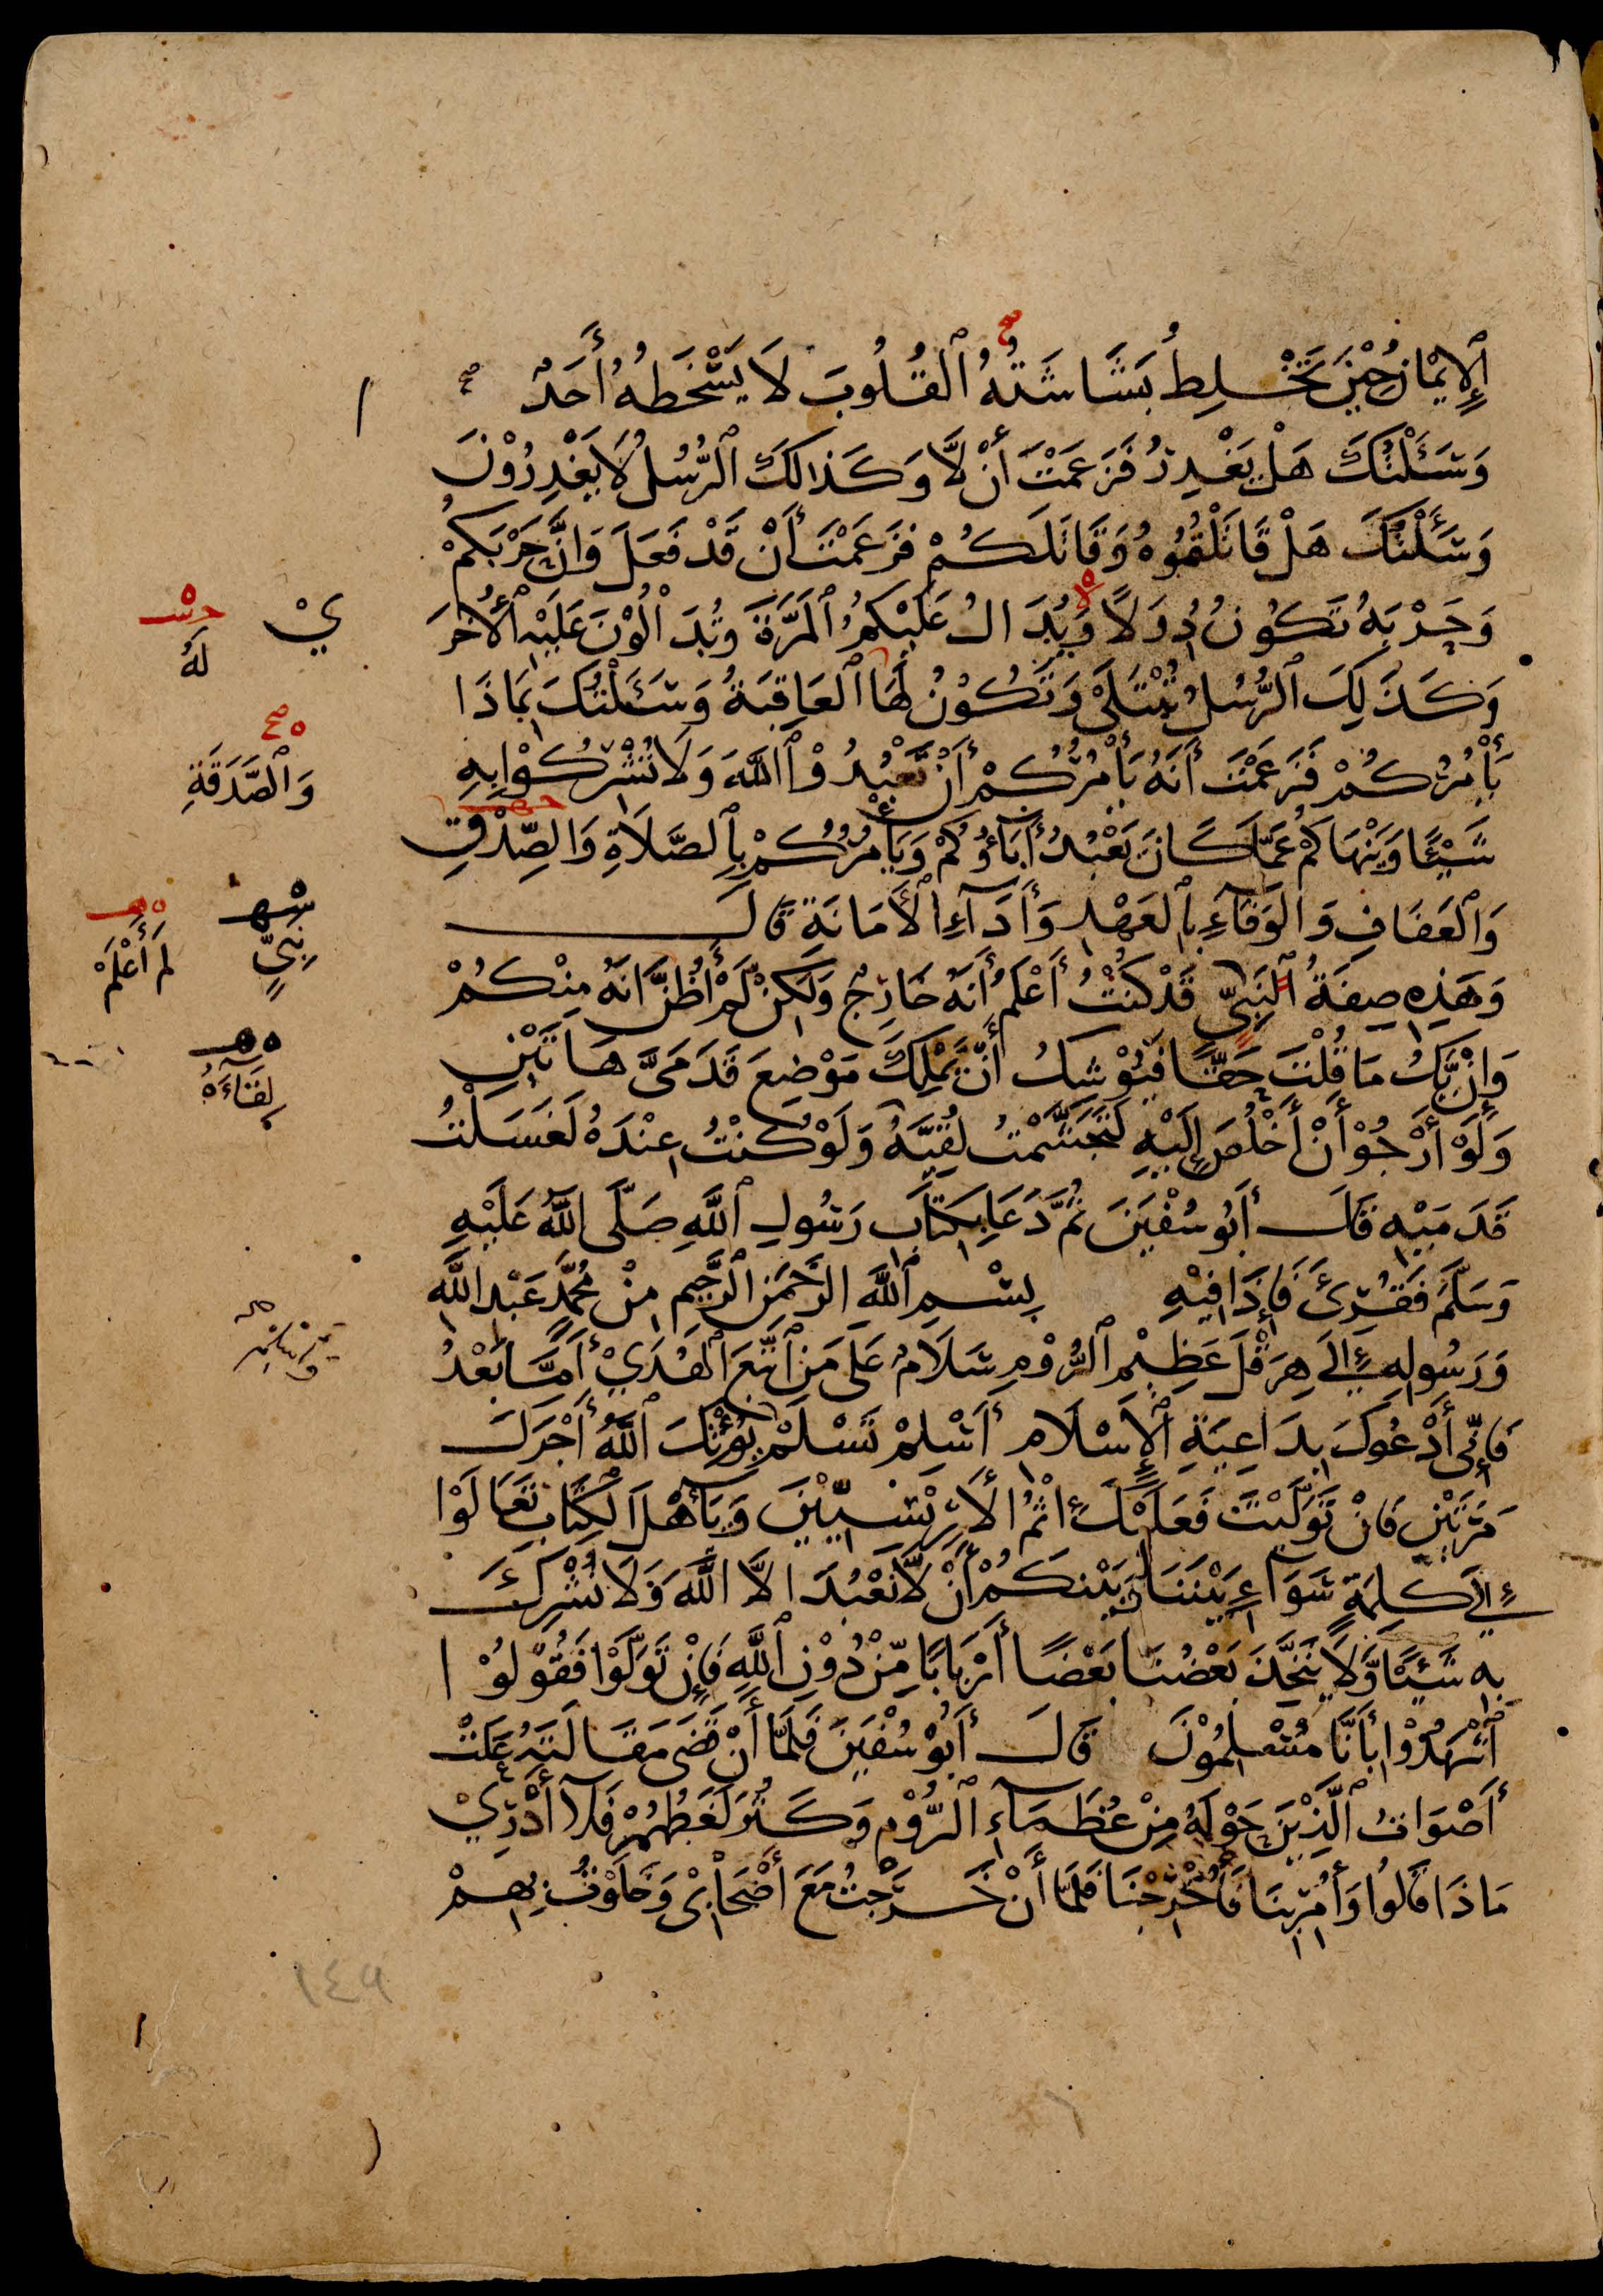 ٱلْإِيْمَانُ حِيْنَ تَخْلِطُ بَشَاشَتُهُ ٱلْقُلُوبَ لَا يَسْخَطُهُ أَحَدٌ
وَسَئَلْتُكَ هَلْ يَغْدِرُ فَزَعَمْتَ أَنْ لَّا وَكَذَالِكَ ٱلرُّسُلُ لَا يَغْدِرُوْنَ
وَسَئَلْتُكَ هَلْ قَاتَلْتُمُوهُ وَقَاتَلَكُمْ فَزَعَمْتَ أَنْ قَدْ فَعَلَ وَانَّ حَرْبَكُمْ
وَحَرْبَهُ تَكُونُ دُوَلًا وَيُدَالُ عَلَيْكُمُ ٱلْمَرَّةَ وَتُدَالُوْنَ عَلَيْهِ ٱلْأُخْرَ
ي
لَهُ
وَكَذَلِكَ ٱلرُّسُلُ تُبْتَلَىْ وَتَكُوْنُ لَهَا ٱلْعَاقِبَةُ وَسَئَلْتُكَ بِمَاذَا
يَأْمُرُكُمْ فَزَعَمْتَ أَنَهُ يَأْمُرُكُمْ أَنْ تَعْبُدُوْا ٱللَّهَ وَلَا تُشْرِكُوْا بِهِ
وَٱلصَّدَقَةِ
شَيْئًا وَيَنْهَاكُمْ عَمَّا كَانَ يَعْبُدُ أٰبَاؤُكُمْ وَيَأْمُرُكُمْ بِٱلصَّلَاةِ وَالصِّدْقِ
وَٱلْعَفَافِ وَالْوَفَآءِ بِٱلْعَهْدِ وَأَدَآءِ ٱلْأَمَانَةِ قَالَ
نَبِيٍّ
لَمْ أَعْلَمْ
وَهَذِهِ صِفَةُ ٱلنَبِيِّ قَدْ كُنْتُ أَعْلَمُ أَنَهُ خَارِجٌ وَلَكِنْ لَّمْ أَظُنَّ انَهُ مِنْكُمْ
وَإِنْ يَّكُ مَا قُلْتَ حَقًّا فَيُوْشِكُ أَنْ يَّمْلِكَ مَوْضِعَ قَدَمَيَّ هَاتَيْنِ
لِقَاءَهُ
وَلَوْ أَرْجُوْ أَنْ أَخْلُصَ إِلَيْهِ لَتَجَشَّمْتُ لُقِيَّهُ وَلَوْ كُنْتُ عِنْدَهُ لَغَسَلْتُ
قَدَمَيْهِ قَالَ أَبُو سُفْيَنَ ثُمَّ دَعَا بِكِتَابِ رَسُولِ ٱللَّهِ صَلَّى اللَّهُ عَلَيْهِ
وَسَلَّمَ فَقُرِئَ فَإِذَا فِيْهِ بِسْمِ ٱللَّهِ الرَّحْمَنِ الرَّحِيمِ مِنْ مُحَمَّدٍ عَبْدِ اللَّهِ
وَرَسُولِهِ إِلَى هِرَقْلَ عَظِيْمِ ٱلرُّوْمِ سَلَامٌ عَلَى مَنِ ٱتَّبَعَ ٱلْهُدَيْ أَمَّا بَعْدُ
فَإِنِّى أَدْعُوكَ بِدَاعِيَةِ ٱلْإِسْلَامِ أَسْلِمْ تَسْلَمْ يُؤْتِكَ ٱللَّهُ أَجْرَكَ
مَرَّتَيْنِ فَانْ تَوَلَّيْتَ فَعَلَيْكَ إِثْمُ ٱلْأَرِيْسِيِّيْنَ وَيَآأَهْلَ ٱلْكِتَابِ تَعَالَوْا
إِلَى كَلِمَةٍ سَوَآءٍ بَيْنَنَا وَبَيْنَكُمْ أَنْ لَّا نَعْبُدَ الَّا اللَّهَ وَلَا نُشْرِكَ
بِهِ شَيْئًا وَّلَا يَتَّخِذَ بَعْضُنَا بَعْضًا أَرْبَابًا مِّنْ دُوْنِ ٱللَّهِ فَإِنْ تَوَلَّوْا فَقُوْلُوْا
ٱشْهَدُوْا بِأَنَّا مُسْلِمُوْنَ قَالَ أَبُوْ سُفْيَنَ فَلَمَّا أَنْ قَضَى مَقَالَتَهُ عَلَتْ
أَصْوَاتُ ٱلَّذِيْنَ حَوْلَهُ مِنْ عُظَمَآءِ ٱلرُّوْمِ وَكَثُرَ لَغَطُهُمْ فَلَآ أَدْرِيْ
مَاذَا قَالُوا وَأُمِرَ بِنَا فَأُخْرِجْنَا فَلَمَّا أَنْ خَرَجْتُ مَعَ أَصْحَابِىْ وَخَلَوْتُ بِهِمْ
١٤٩